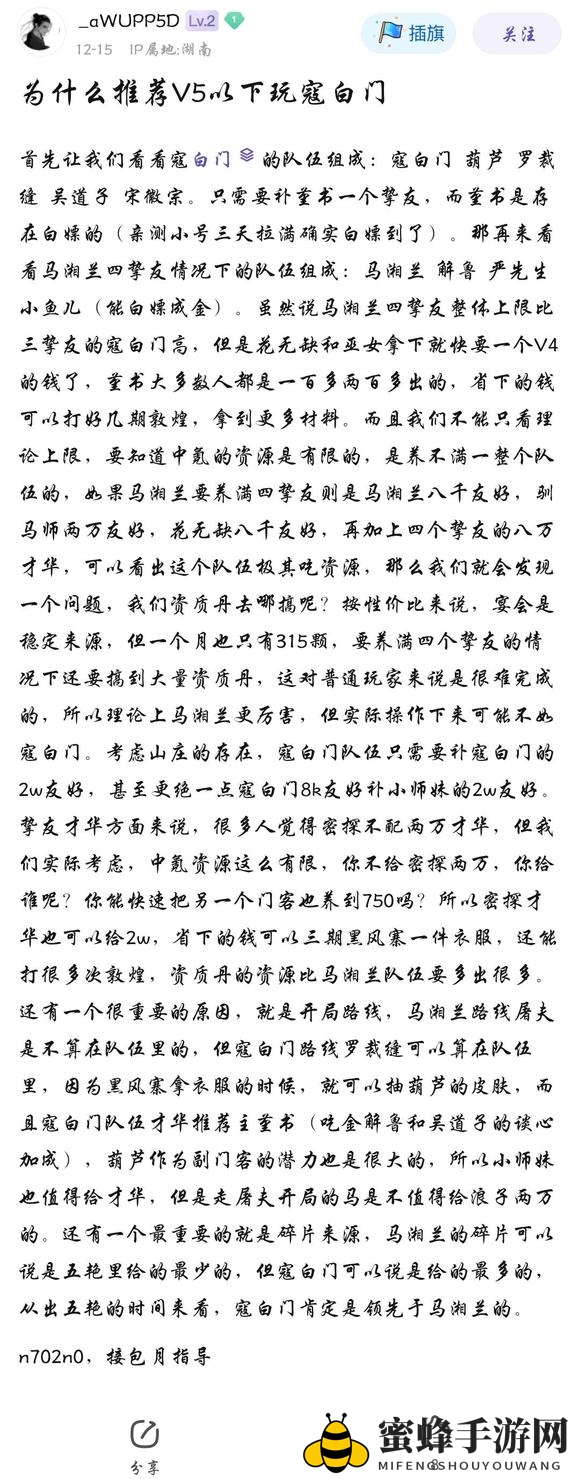 _aWUPP5D Lv.2 1
12-15 IP属地:湖南
插旗
关注
为什么推荐V5以下玩寇白门
首先让我们看看寇白门 的队伍组成：寇白门 葫芦 罗裁
缝 吴道子 宋徽宗。只需要补董书一个挚友，而董书是存
在白嫖的（亲测小号三天拉满确实白嫖到了）。那再来看
看马湘兰四挚友情况下的队伍组成：马湘兰 解鲁 严先生
小鱼儿（能白嫖成金）。虽然说马湘兰四挚友整体上限比
三挚友的寇白门高，但是花无缺和巫女拿下就快要一个V4
的钱了，董书大多数人都是一百多两百多出的，省下的钱
可以打好几期敦煌，拿到更多材料。而且我们不能只看理
论上限，要知道中氪的资源是有限的，是养不满一整个队
伍的，如果马湘兰要养满四挚友则是马湘兰八千友好，驯
马师两万友好，花无缺八千友好，再加上四个挚友的八万
才华，可以看出这个队伍极其吃资源，那么我们就会发现
一个问题，我们资质丹去哪搞呢？按性价比来说，宴会是
稳定来源，但一个月也只有315颗，要养满四个挚友的情
况下还要搞到大量资质丹，这对普通玩家来说是很难完成
的，所以理论上马湘兰更厉害，但实际操作下来可能不如
寇白门。考虑山庄的存在，寇白门队伍只需要补寇白门的
2w友好，甚至更绝一点寇白门8k友好补小师妹的2w友好。
挚友才华方面来说，很多人觉得密探不配两万才华，但我
们实际考虑，中氪资源这么有限，你不给密探两万，你给
谁呢？你能快速把另一个门客也养到750吗？所以密探才
华也可以给2w，省下的钱可以三期黑风寨一件衣服，还能
打很多次敦煌，资质丹的资源比马湘兰队伍要多出很多。
还有一个很重要的原因，就是开局路线，马湘兰路线屠夫
是不算在队伍里的，但寇白门路线罗裁缝可以算在队伍
里，因为黑风寨拿衣服的时候，就可以抽葫芦的皮肤，而
且寇白门队伍才华推荐主董书（吃金解鲁和吴道子的谈心
加成），葫芦作为副门客的潜力也是很大的，所以小师妹
也值得给才华，但是走屠夫开局的马是不值得给浪子两万
的。还有一个最重要的就是碎片来源，马湘兰的碎片可以
说是五艳里给的最少的，但寇白门可以说是给的最多的，
从出五艳的时间来看，寇白门肯定是领先于马湘兰的。
n702n0，接包月指导
分享
蜜蜂手游网
MIFENGSHOUYOUWANG